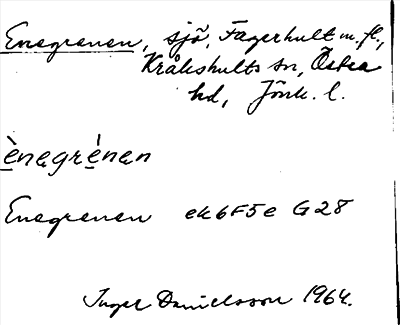 Enegrenen, sjö, Fagerhult m.fl.,
Kråkshults sn, Östra
hd, Jönk. l.
ènegrénen
Enegrenen ek6F5e G28
Inger Danielsson 1964.